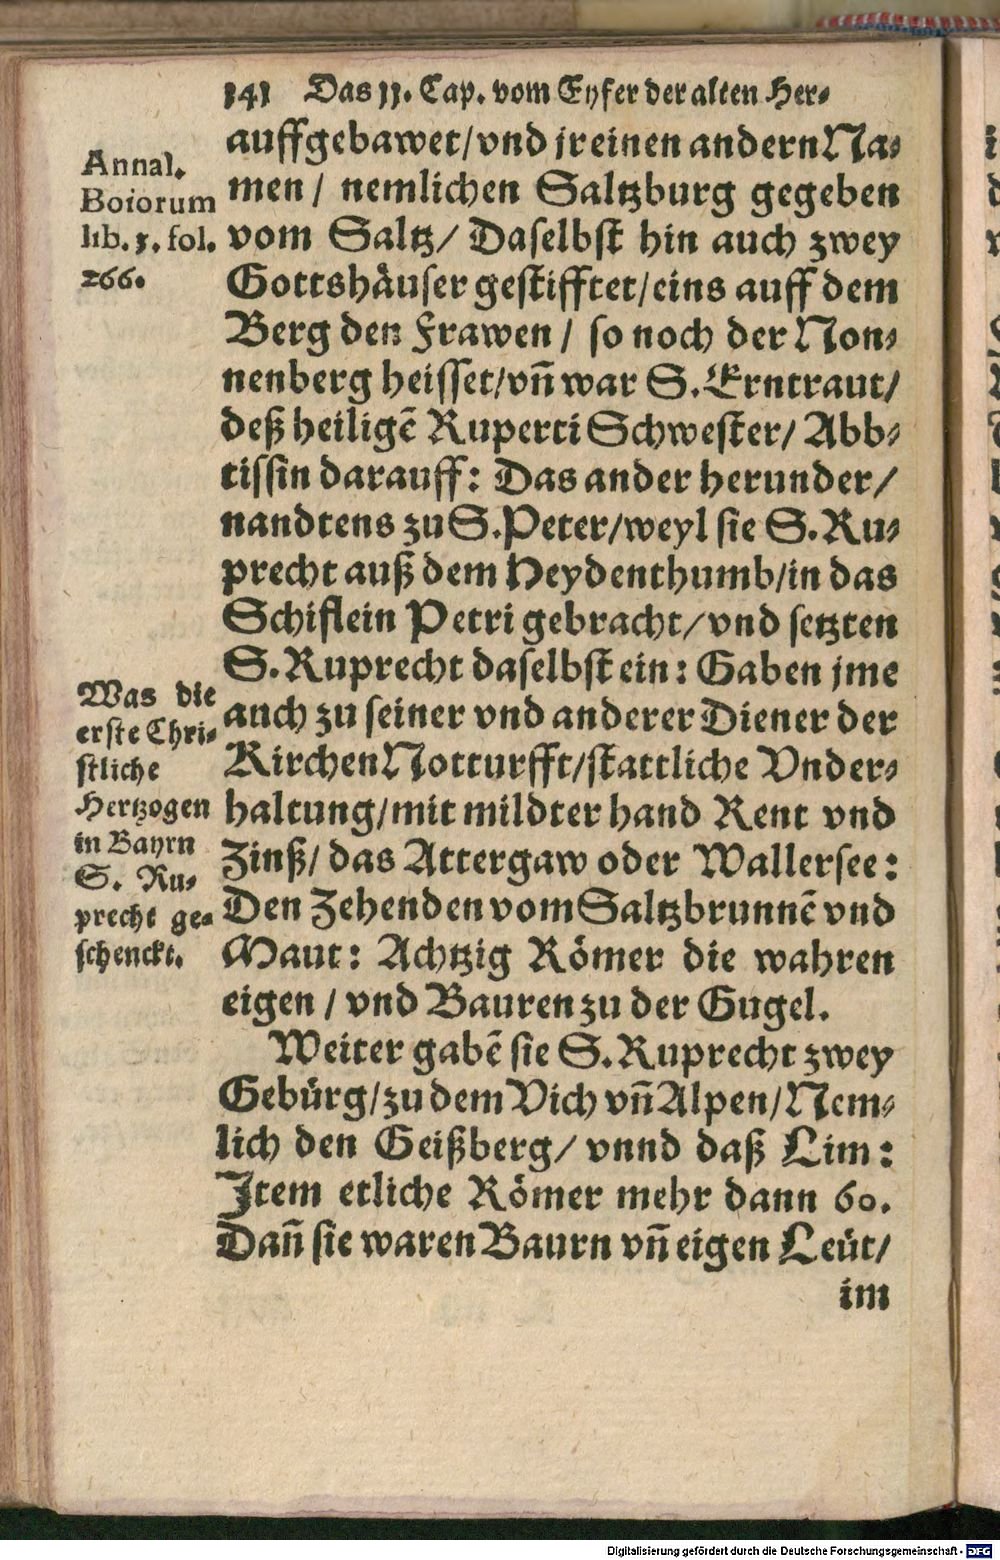 141 Das 11. Cap. vom Eyfer der alten Her⸗
auffgebawet/vnd jr einen andern Na⸗
men / nemlichen Saltzburg gegeben
vom Saltz/ Daselbst hin auch zwey
Gottshäuser gestifftet/eins auff dem
Berg den Frawen / so noch der Non⸗
nenberg heisset/vñ war S. Erntraut/
deß heiligẽ Ruperti Schwester/ Abb⸗
tissin darauff: Das ander herunder/
nandtens zu S. Peter/weyl sie S. Ru⸗
precht auß dem Heydenthumb/in das
Schiflein Petri gebracht/vnd setzten
S. Ruprecht daselbst ein: Gaben jme
auch zu seiner vnd anderer Diener der
Kirchen Notturfft/stattliche Vnder⸗
haltung/mit mildter hand Rent vnd
Zinß/ das Attergaw oder Wallersee:
Den Zehenden vom Saltzbrunnẽ vnd
Maut: Achtzig Römer die wahren
eigen / vnd Bauren zu der Gugel.
Weiter gabẽ sie S. Ruprecht zwey
Gebürg/zu dem Vich vñ Alpen/Nem⸗
lich den Geißberg/ vnnd daß Lim:
Item etliche Römer mehr dann 60.
Dañ sie waren Baurn vñ eigen Leüt/
im
Annal.
Boiorum
lib. 3. fol.
266.
Was die
erste Chri⸗
stliche
Hertzogen
in Bayrn
S. Ru⸗
precht ge⸗
schenckt.
Digitalisierung gefördert durch die Deutsche Forschungsgemeinschaft - DFG